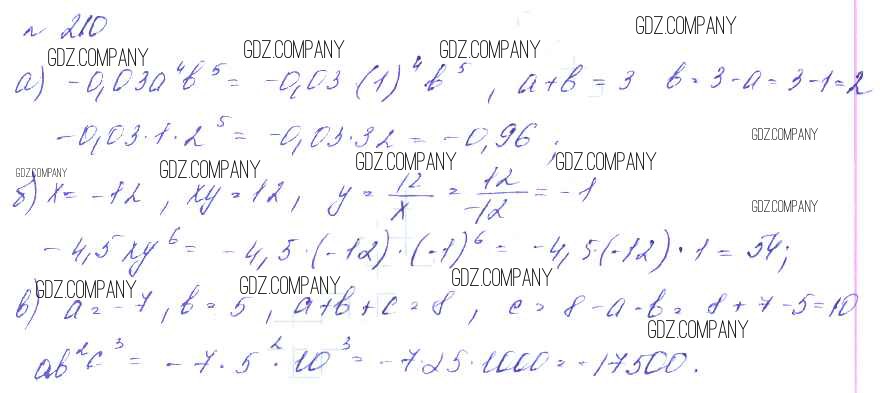 № 210
GDZ.COMPANY
GDZ.COMPANY GDZ.COMPANY GDZ.COMPANY
а) -0,03a⁴b⁵ = -0,03 (1)⁴ b⁵, a+b = 3 b = 3-a = 3-1 = 2
-0,03·1·2⁵ = -0,03·32 = -0,96;
GDZ.COMPANY
GDZ.COMPANY GDZ.COMPANY GDZ.COMPANY GDZ.COMPANY
б) x = -12, xy = 12, y = 12/x = 12/-12 = -1
GDZ.COMPANY
-4,5xy⁶ = -4,5·(-12)·(-1)⁶ = -4,5·(-12)·1 = 54;
GDZ.COMPANY GDZ.COMPANY GDZ.COMPANY
в) a = -7, b = 5, a+b+c = 8, c = 8-a-b = 8+7-5 = 10
GDZ.COMPANY
ab²c³ = -7·5²·10³ = -7·25·1000 = -17500.